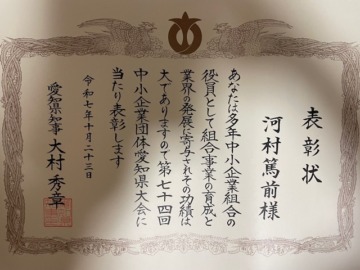 表彰状
河村篤前様
あなたは多年中小企業組合の
役員として組合事業の育成と
業界の発展に寄与されその功績は
大でありますので第七十四回
中小企業団体愛知県大会に
当たり表彰します
令和七年十月二十三日
愛知県知事 大村秀章